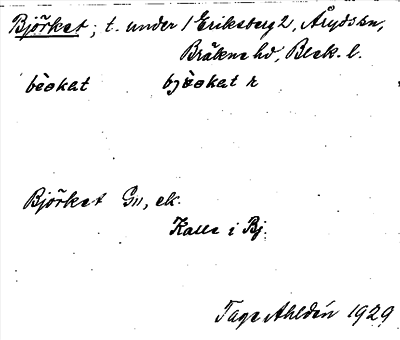 Björket; t. under 1 Eriksberg 2, Åryds sn,
Bräkne hd, Blek. l.
bèokat bjèokat r
Björket Gu, ek.
Kalle i Bj.
Tage Ahldén 1929